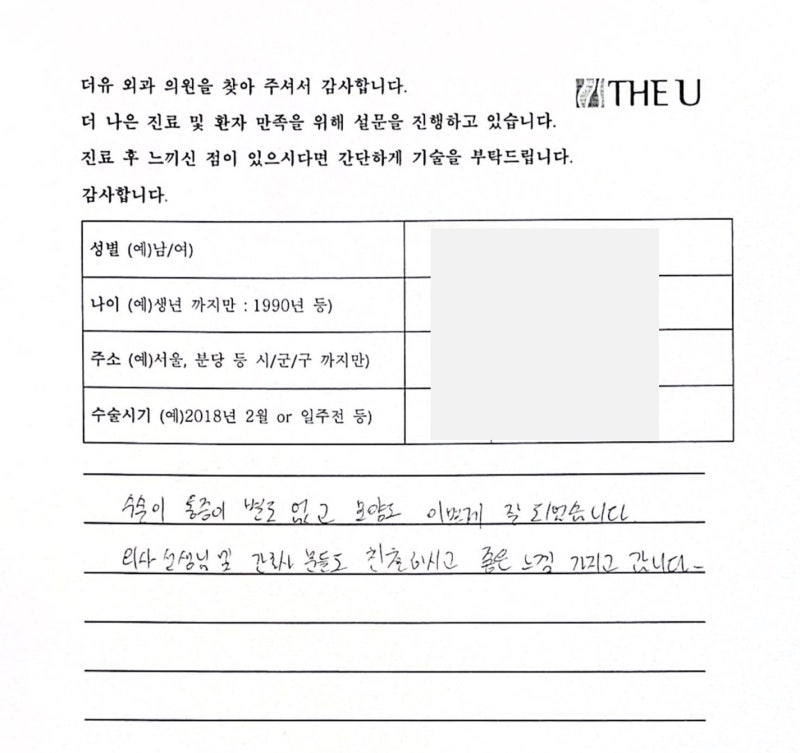 더유 외과 의원을 찾아 주셔서 감사합니다.
THE U
더 나은 진료 및 환자 만족을 위해 설문을 진행하고 있습니다.
진료 후 느끼신 점이 있으시다면 간단하게 기술을 부탁드립니다.
감사합니다.
성별 (예)남/여)
나이 (예)생년 까지만 : 1990년 등)
주소 (예)서울, 분당 등 시/군/구 까지만)
수술시기 (예)2018년 2월 or 일주전 등)
수술이 통증이 별로 없고 모양도 이쁘게 잘 되었습니다.
의사 선생님 및 간호사 분들도 친절하시고 좋은 느낌 가지고 갑니다-